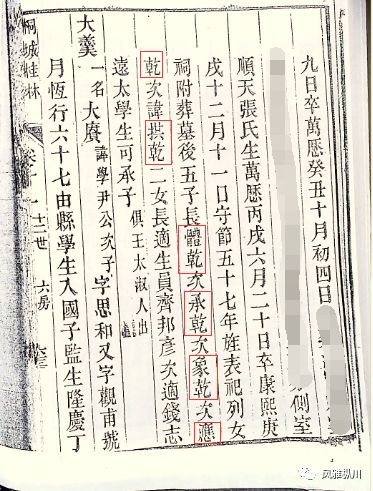 九日卒萬厯癸丑十月初四日
側室
順天張氏生萬厯丙戌六月二十日卒康熙庚
戌十二月十一日守節五十七年旌表祀列女
祠附葬墓後五子長體乾次承乾次象乾次應
乾次諱拱乾二女長適生員齊邦彥次適錢志
遠太學生可承子俱王太淑人出
大羹
一名大賡諱學尹公次子字思和又字觀甫號
月恆行六十七由縣學生入國子監生隆慶丁
桐城桂林
十二世
六房
风雅枞川